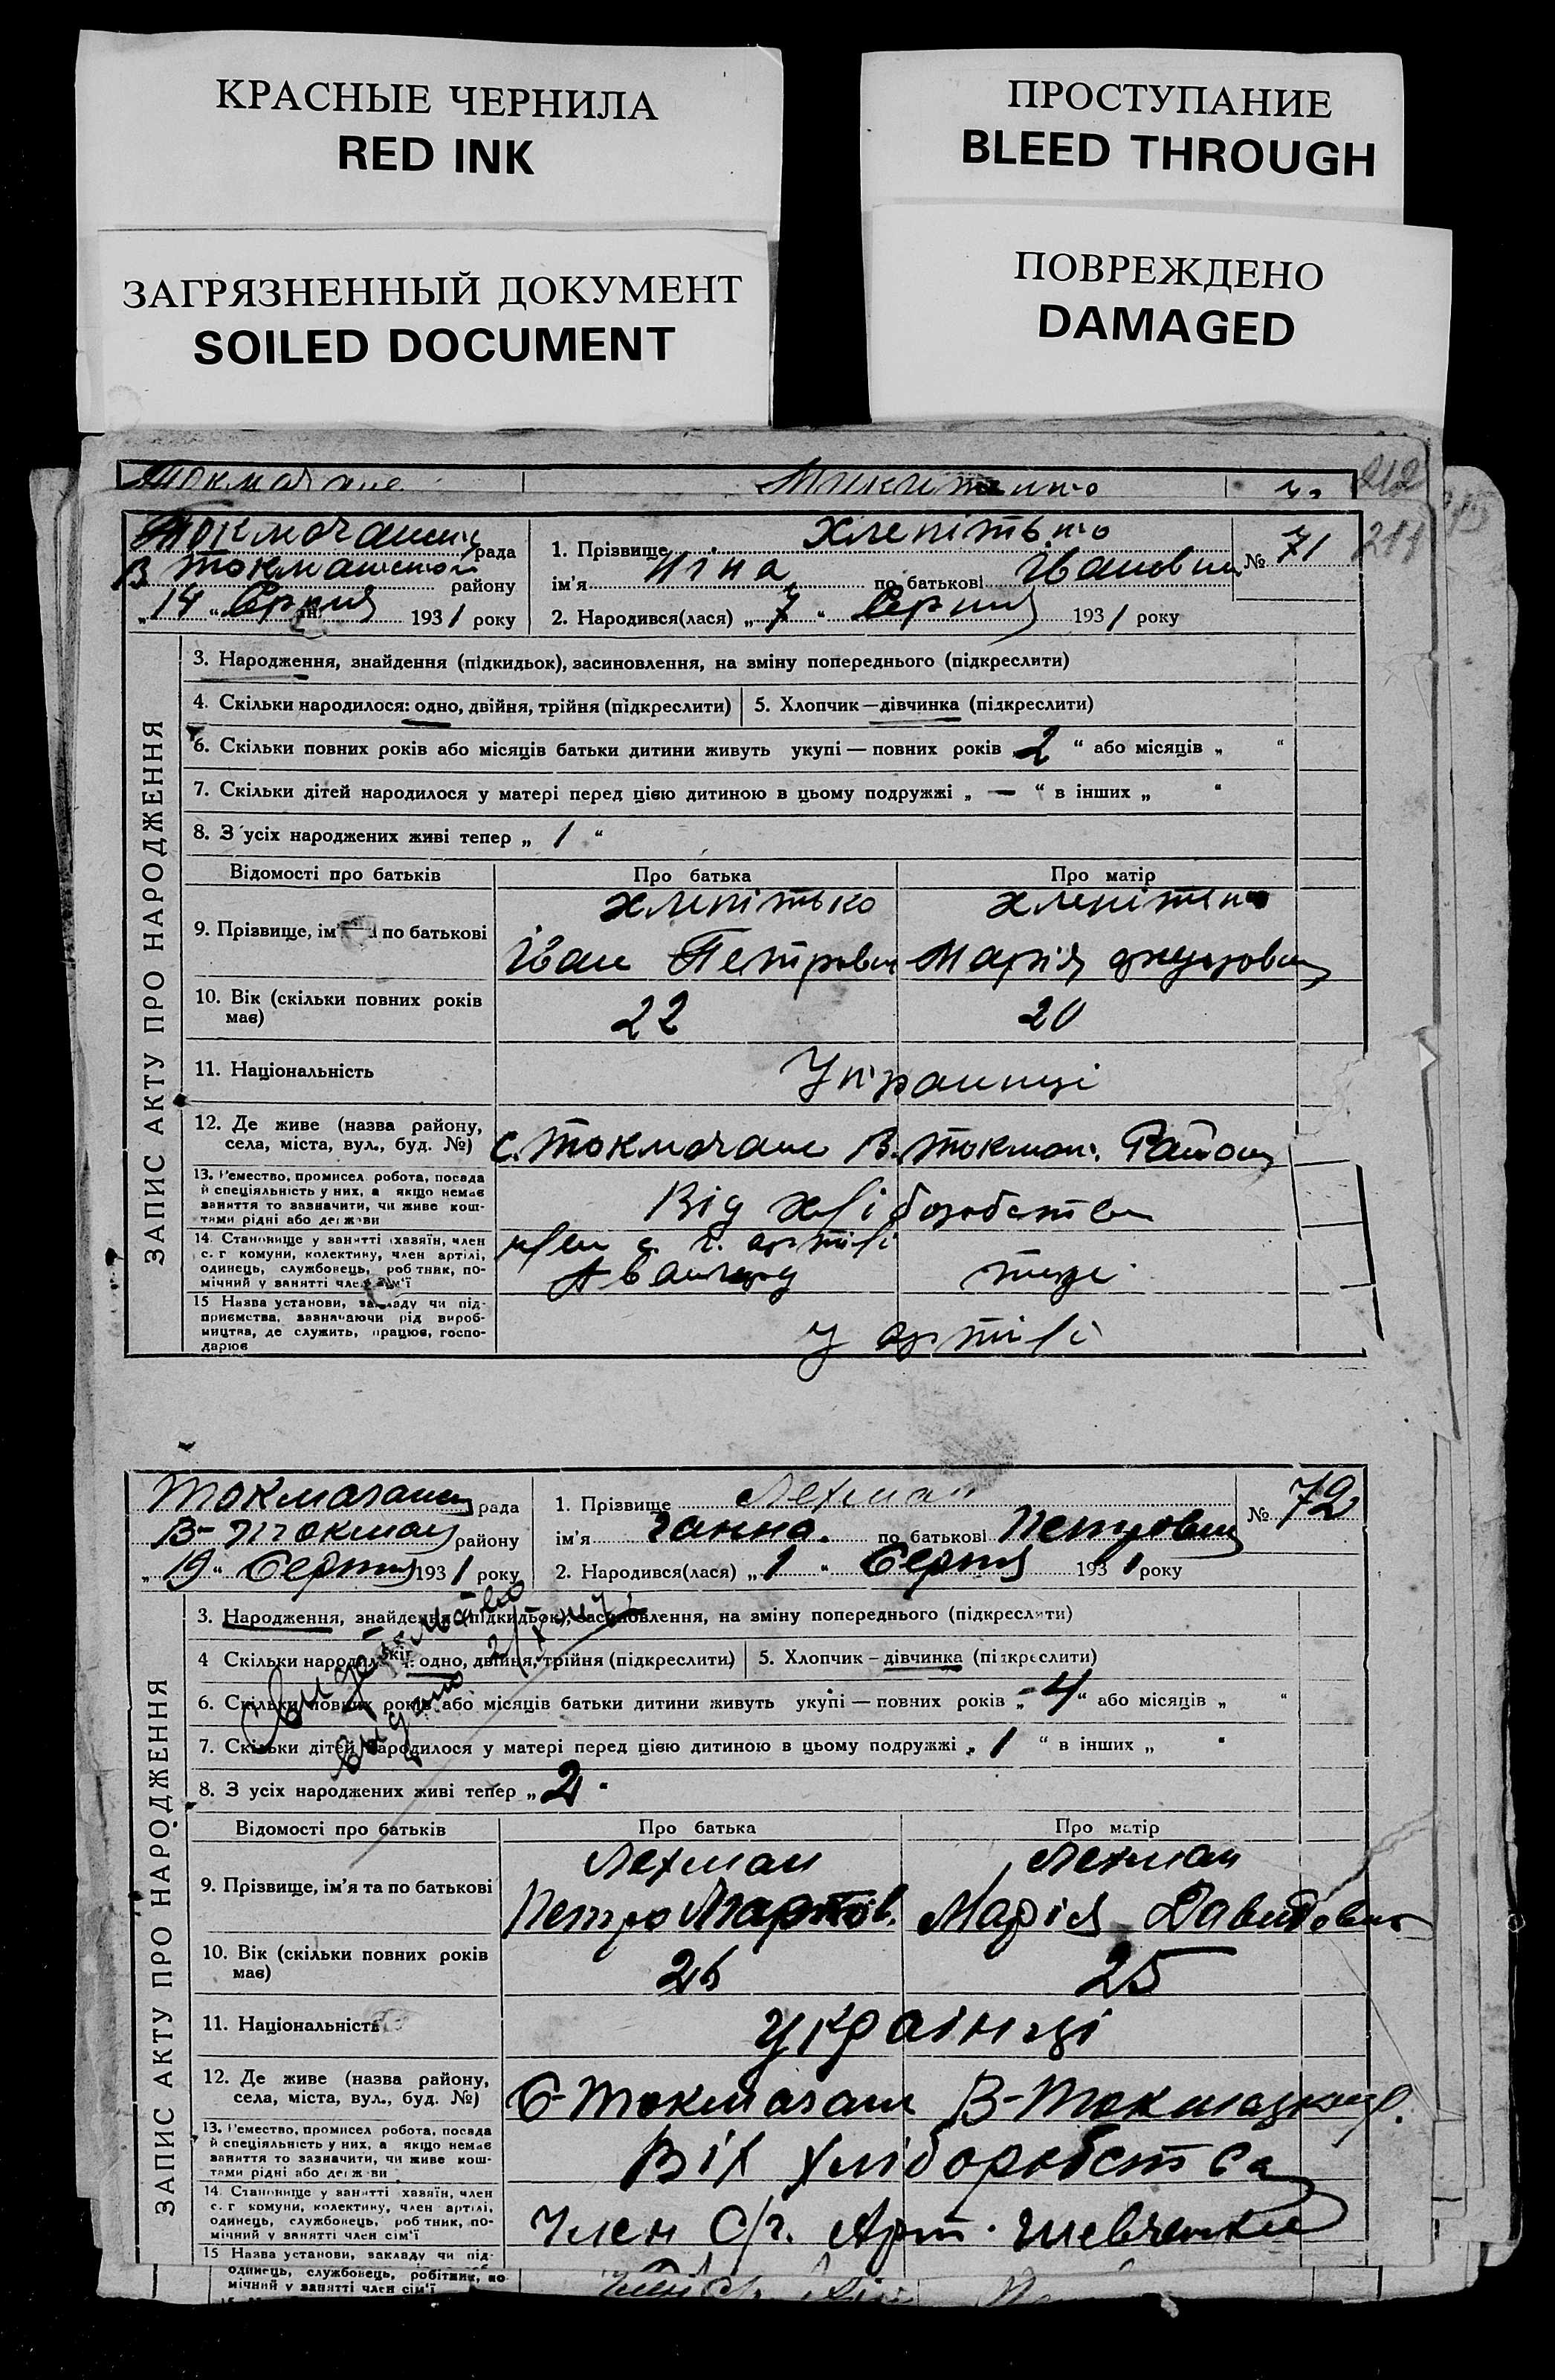 КРАСНЫЕ ЧЕРНИЛА
RED INK
ПРОСТУПАНИЕ
BLEED THROUGH
ЗАГРЯЗНЕННЫЙ ДОКУМЕНТ
SOILED DOCUMENT
ПОВРЕЖДЕНО
DAMAGED
212
211
рада
району
„14“ Серпня 1931 року
1. Прізвище Хлепітько
ім'я Ніна по батькові Івановна
№ 71
2. Народився(лася) „7“ Серпня 1931 року
ЗАПИС АКТУ ПРО НАРОДЖЕННЯ
3. Народження, знайдення (підкидьок), засиновлення, на зміну попереднього (підкреслити)
4. Скільки народилося: одно, двійня, трійня (підкреслити)
5. Хлопчик—дівчинка (підкреслити)
6. Скільки повних років або місяців батьки дитини живуть укупі — повних років 2 “ або місяців „ “
7. Скільки дітей народилося у матері перед цією дитиною в цьому подружжі „ — “ в інших „ “
8. З усіх народжених живі тепер „ 1 “
Відомості про батьків
Про батька
Про матір
9. Прізвище, ім' по батькові
Хлепітько
Іван Петрович
Хлепітько
Марія
10. Вік (скільки повних років має)
22
20
11. Національність
Українці
12. Де живе (назва району, села, міста, вул., буд. №)
с. Токмачани В. Токмац. Району
13. Ремество, промисел робота, посада й спеціяльність у них, а якщо немає заняття то зазначити, чи живе коштами рідні або держави
Від хліборобства
14. Становище у занятті хазяїн, член с. г комуни, колективу, член артілі, одинець, службовець, робітник, помічний у занятті член сім'ї
член с. г. артілі
Авангард
теж
15 Назва установи, закладу чи підприємства, зазначаючи рід виробництва, де служить, працює, господарює
у артілі
рада
В-Токмац району
„19“ Серпня 1931 року
1. Прізвище Лехман
ім'я Ганна. по батькові Петровна
№ 72
2. Народився(лася) „1“ Серпня 1931 року
ЗАПИС АКТУ ПРО НАРОДЖЕННЯ
3. Народження, знайдення (підкидьок), засиновлення, на зміну попереднього (підкреслити)
4 Скільки народилося: одно, двійня, трійня (підкреслити)
5. Хлопчик—дівчинка (підкреслити)
6. Скільки повних років або місяців батьки дитини живуть укупі — повних років „4“ або місяців „ “
7. Скільки дітей народилося у матері перед цією дитиною в цьому подружжі „ 1 “ в інших „ “
8. З усіх народжених живі тепер „ 2
видано
Відомості про батьків
Про батька
Про матір
9. Прізвище, ім'я та по батькові
Лехман
Петро
Лехман
Марія Давидовна
10. Вік (скільки повних років має)
26
25
11. Національність
українці
12. Де живе (назва району, села, міста, вул., буд. №)
С-Токмачани
13. Ремество, промисел робота, посада й спеціяльність у них, а якщо немає заняття то зазначити, чи живе коштами рідні або держави
Від хліборобства
14. Становище у занятті хазяїн, член с. г комуни, колективу, член артілі, одинець, службовець, робітник, помічний у занятті член сім'ї
Член С/г. Арт. Шевченка
15 Назва установи, закладу чи під-
одинець, службовець, робітник, по
мічний у занятті член сім'ї